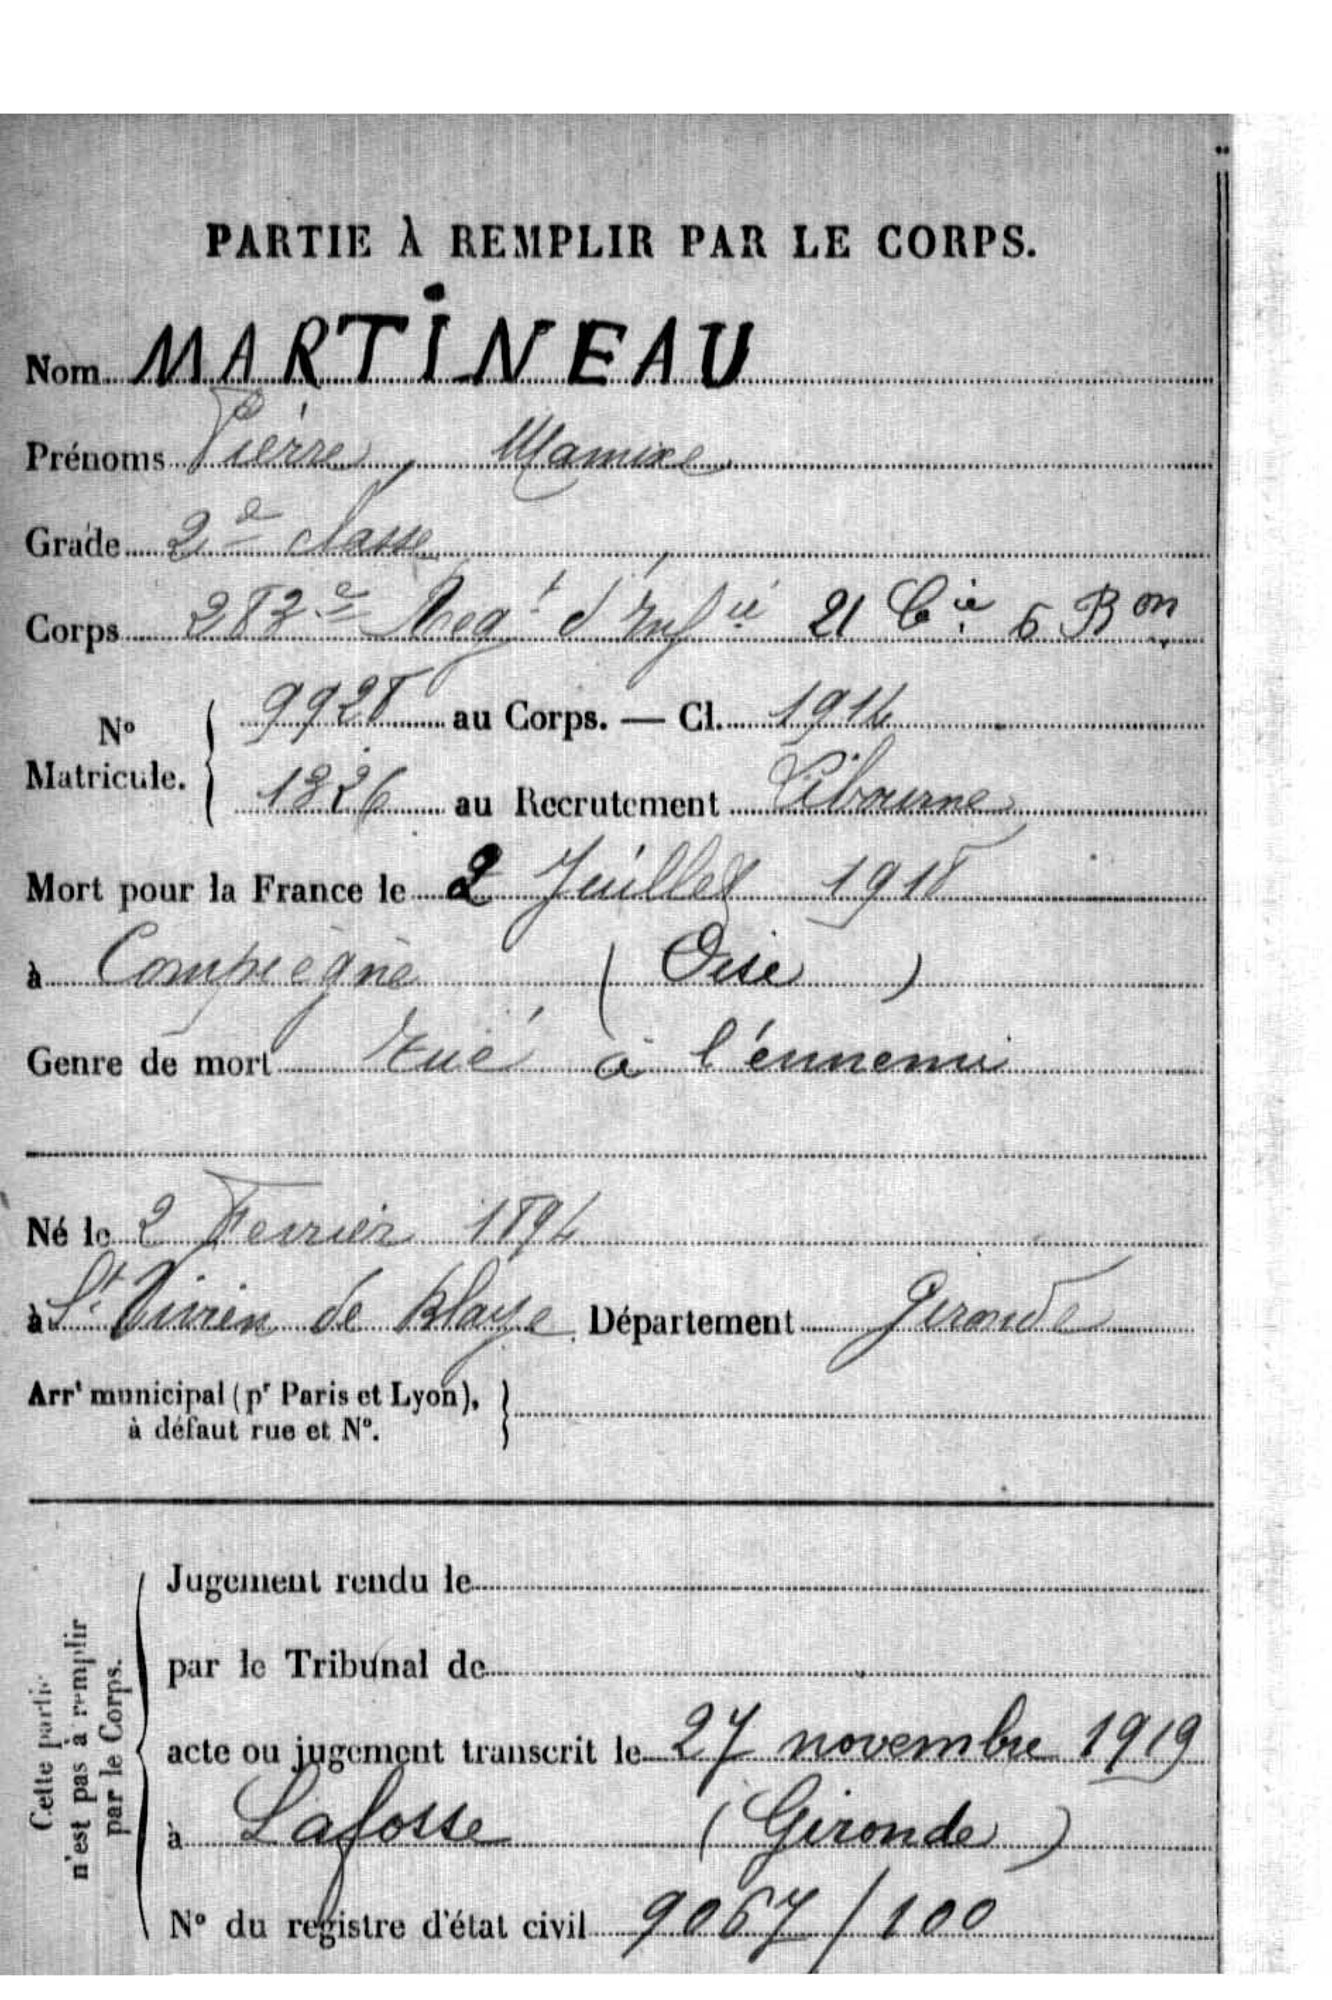 PARTIE À REMPLIR PAR LE CORPS.
Nom MARTINEAU
Prénoms Pierre, Mamixe
Grade 2e classe
Corps 283e Regt d'Infie 21 Cie 6 Bon
No Matricule. 9928 au Corps. — Cl. 1914
1326 au Recrutement Libourne
Mort pour la France le 2 Juillet 1918
à Compiègne (Oise)
Genre de mort tué à l'ennemi
Né le 2 Fevrier 1894
à St Vivien de Blaye Département Gironde
Arrt municipal (pr Paris et Lyon),
à défaut rue et No.
Cette partie
n'est pas à remplir
par le Corps.
Jugement rendu le
par le Tribunal de
acte ou jugement transcrit le 27 novembre 1919
à Lafosse (Gironde)
No du registre d'état civil 9067/100